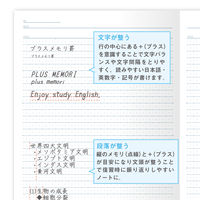 文字が整う
行の中心にある+(プラス)
を意識することで文字バラ
ンスや文字間隔をとりや
すく、読みやすい日本語・
英数字・記号が書けます。
プラスメモリ罫
プラスメモリ罫
PLUS MEMORI
plus memori
Enjoy study English.
段落が整う
縦のメモリ(点線)と+(プラス)
が目安になり文頭が整うこと
で復習時に振り返りしやすい
ノートに。
世界四大文明
・メソポタミア文明
・エジプト文明
・インダス文明
・黄河文明
(1)生物の成長
◆細胞分裂